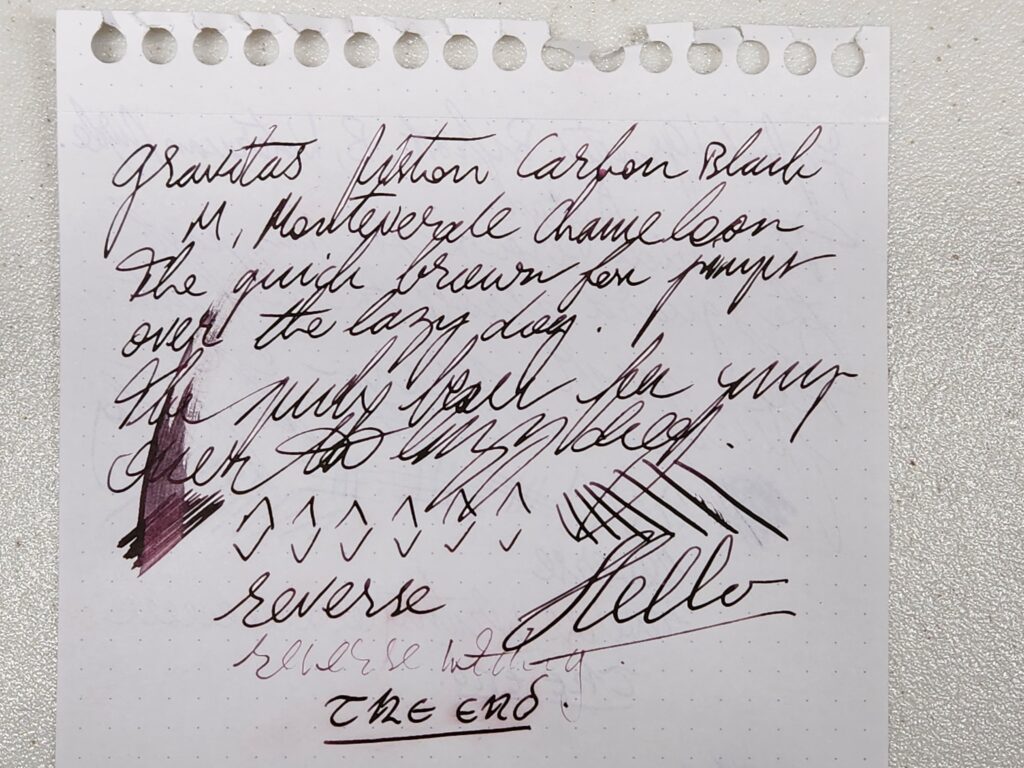 Gravitas Piston Carbon Black
M, Monteverde Chameleon
The quick brown fox jumps
over the lazy dog.
The
over lazy dog.
reverse
Hello
reverse writing.
THE END.